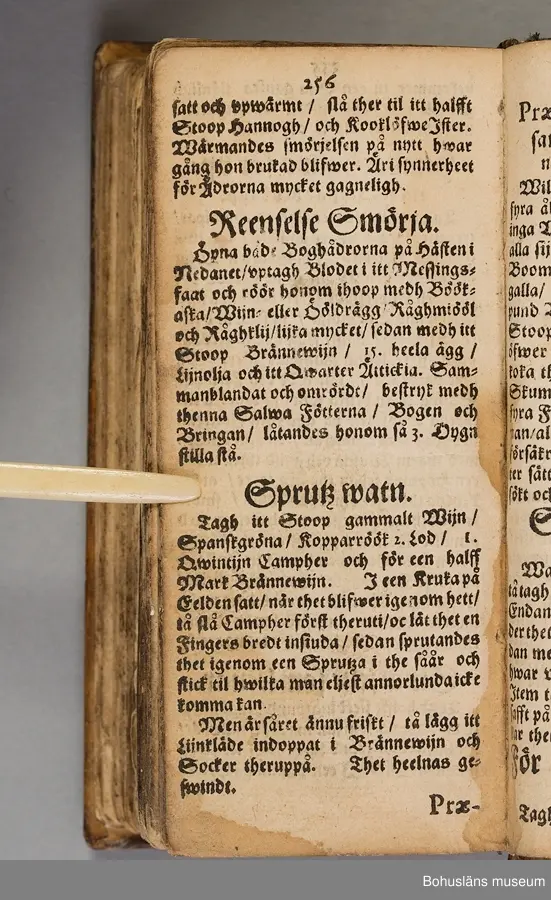 256
satt och vpwärmt / slå ther til itt halfft
Stoop Hannogh / och Kooklöfwe Ister.
Wärmandes smörjelsen på nytt hwar
gång hon brukad blifwer. Äri synnerheet
för Ådrorna mycket gagneligh.
Reenselse Smörja.
Öpna både Boghådrorna på Hästen i
Nedanet / vptagh Blodet i itt Messings-
faat och röör honom ihoop medh Böök-
aska / Wijn- eller Höldrägg / Råghmiööl
och Råghklij / lijka mycket / sedan medh itt
Stoop Brännewijn / 15. heela ägg /
Lijnolja och itt Qwarter Ättickia. Sam-
manblandat och omrördt / bestryk medh
thenna Salwa Fötterna / Bogen och
Bringan / låtandes honom så 3. Dygn
stilla stå.
Sprutz watn.
Tagh itt Stoop gammalt Wijn /
Spanskgröna / Kopparröök 2. Lod / 1.
Qwintijn Campher och för een halff
Mark Brännewijn. I een Kruka på
Eelden satt / när thet blifwer igenom hett /
tå slå Campher först theruti / oc lät thet en
Fingers bredt insiuda / sedan sprutandes
thet igenom een Sprutza i the såår och
stick til hwilka man eljest annorlunda icke
komma kan.
Men är såret ännu friskt / tå lägg itt
Lijnkläde indoppat i Brännewijn och
Socker theruppå. Thet heelnas ge-
swindt.
Præ-
Bohusläns museum